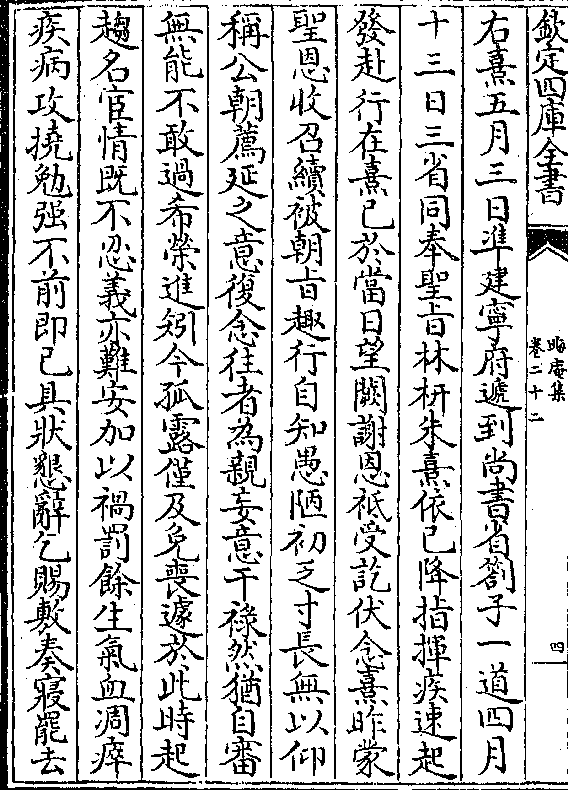 欽定四庫全書
晦庵集
卷二十二
四
右熹五月三日準建寧府遞到尚書省劄子一道四月
十三日三省同奉聖旨林枅朱熹依已降指揮疾速起
發赴行在熹已於當日望闕謝恩祗受訖伏念熹昨蒙
聖恩收召續被朝旨趣行自知愚陋初乏寸長無以仰
稱公朝薦延之意復念往者為親妄意干祿然猶自審
無能不敢過希榮進矧今孤露僅及免喪遽於此時起
趨名宦情既不忍義亦難安加以禍罰餘生氣血凋瘁
疾病攻撓勉强不前即已具狀懇辭乞賜敷奏寢罷去